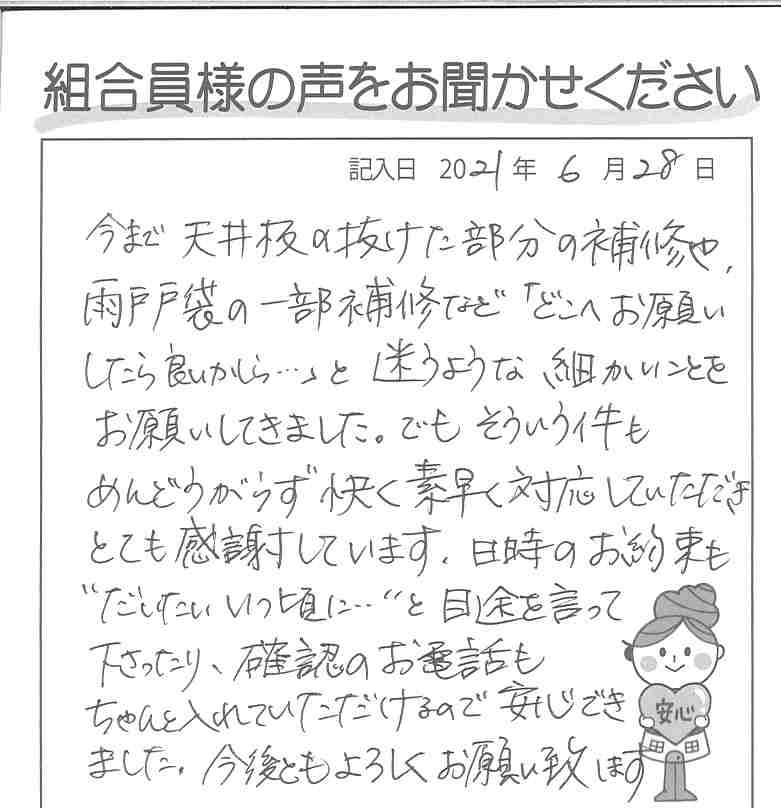 組合員様の声をお聞かせください
記入日 2021年 6月28日
今まで 天井板の抜けた部分の補修や、
雨戸戸袋の一部補修など「どこへお願い
したら良いかしら…」と 迷うような 細かいことを
お願いしてきました。でも そういう件も
めんどうがらず 快く素早く対応していただき
とても感謝しています。日時のお約束も
"だいたい いつ頃に…"と 目途を言って
下さったり、確認のお電話も
ちゃんと入れていただけるので 安心でき
ました。今後ともよろしくお願い致します
安心